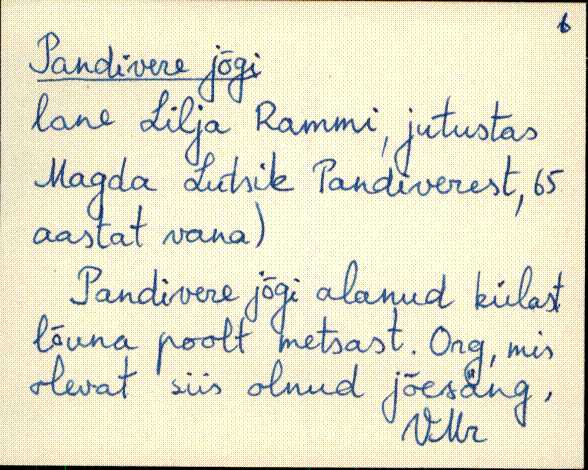 6
Pandivere jõgi
lane Lilja Rammi, jutustas
Magda Lutsik Pandiverest, 65
aastat vana)
Pandivere jõgi alanud külast
lõuna poolt metsast. Org, mis
olevat siis olnud jõesäng,
VMr